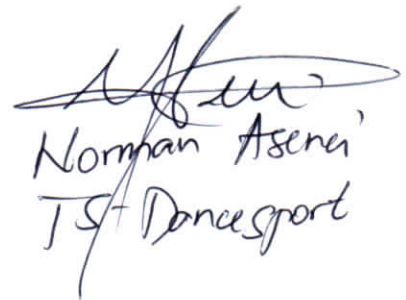 Norman Asenei
TS-Dancesport